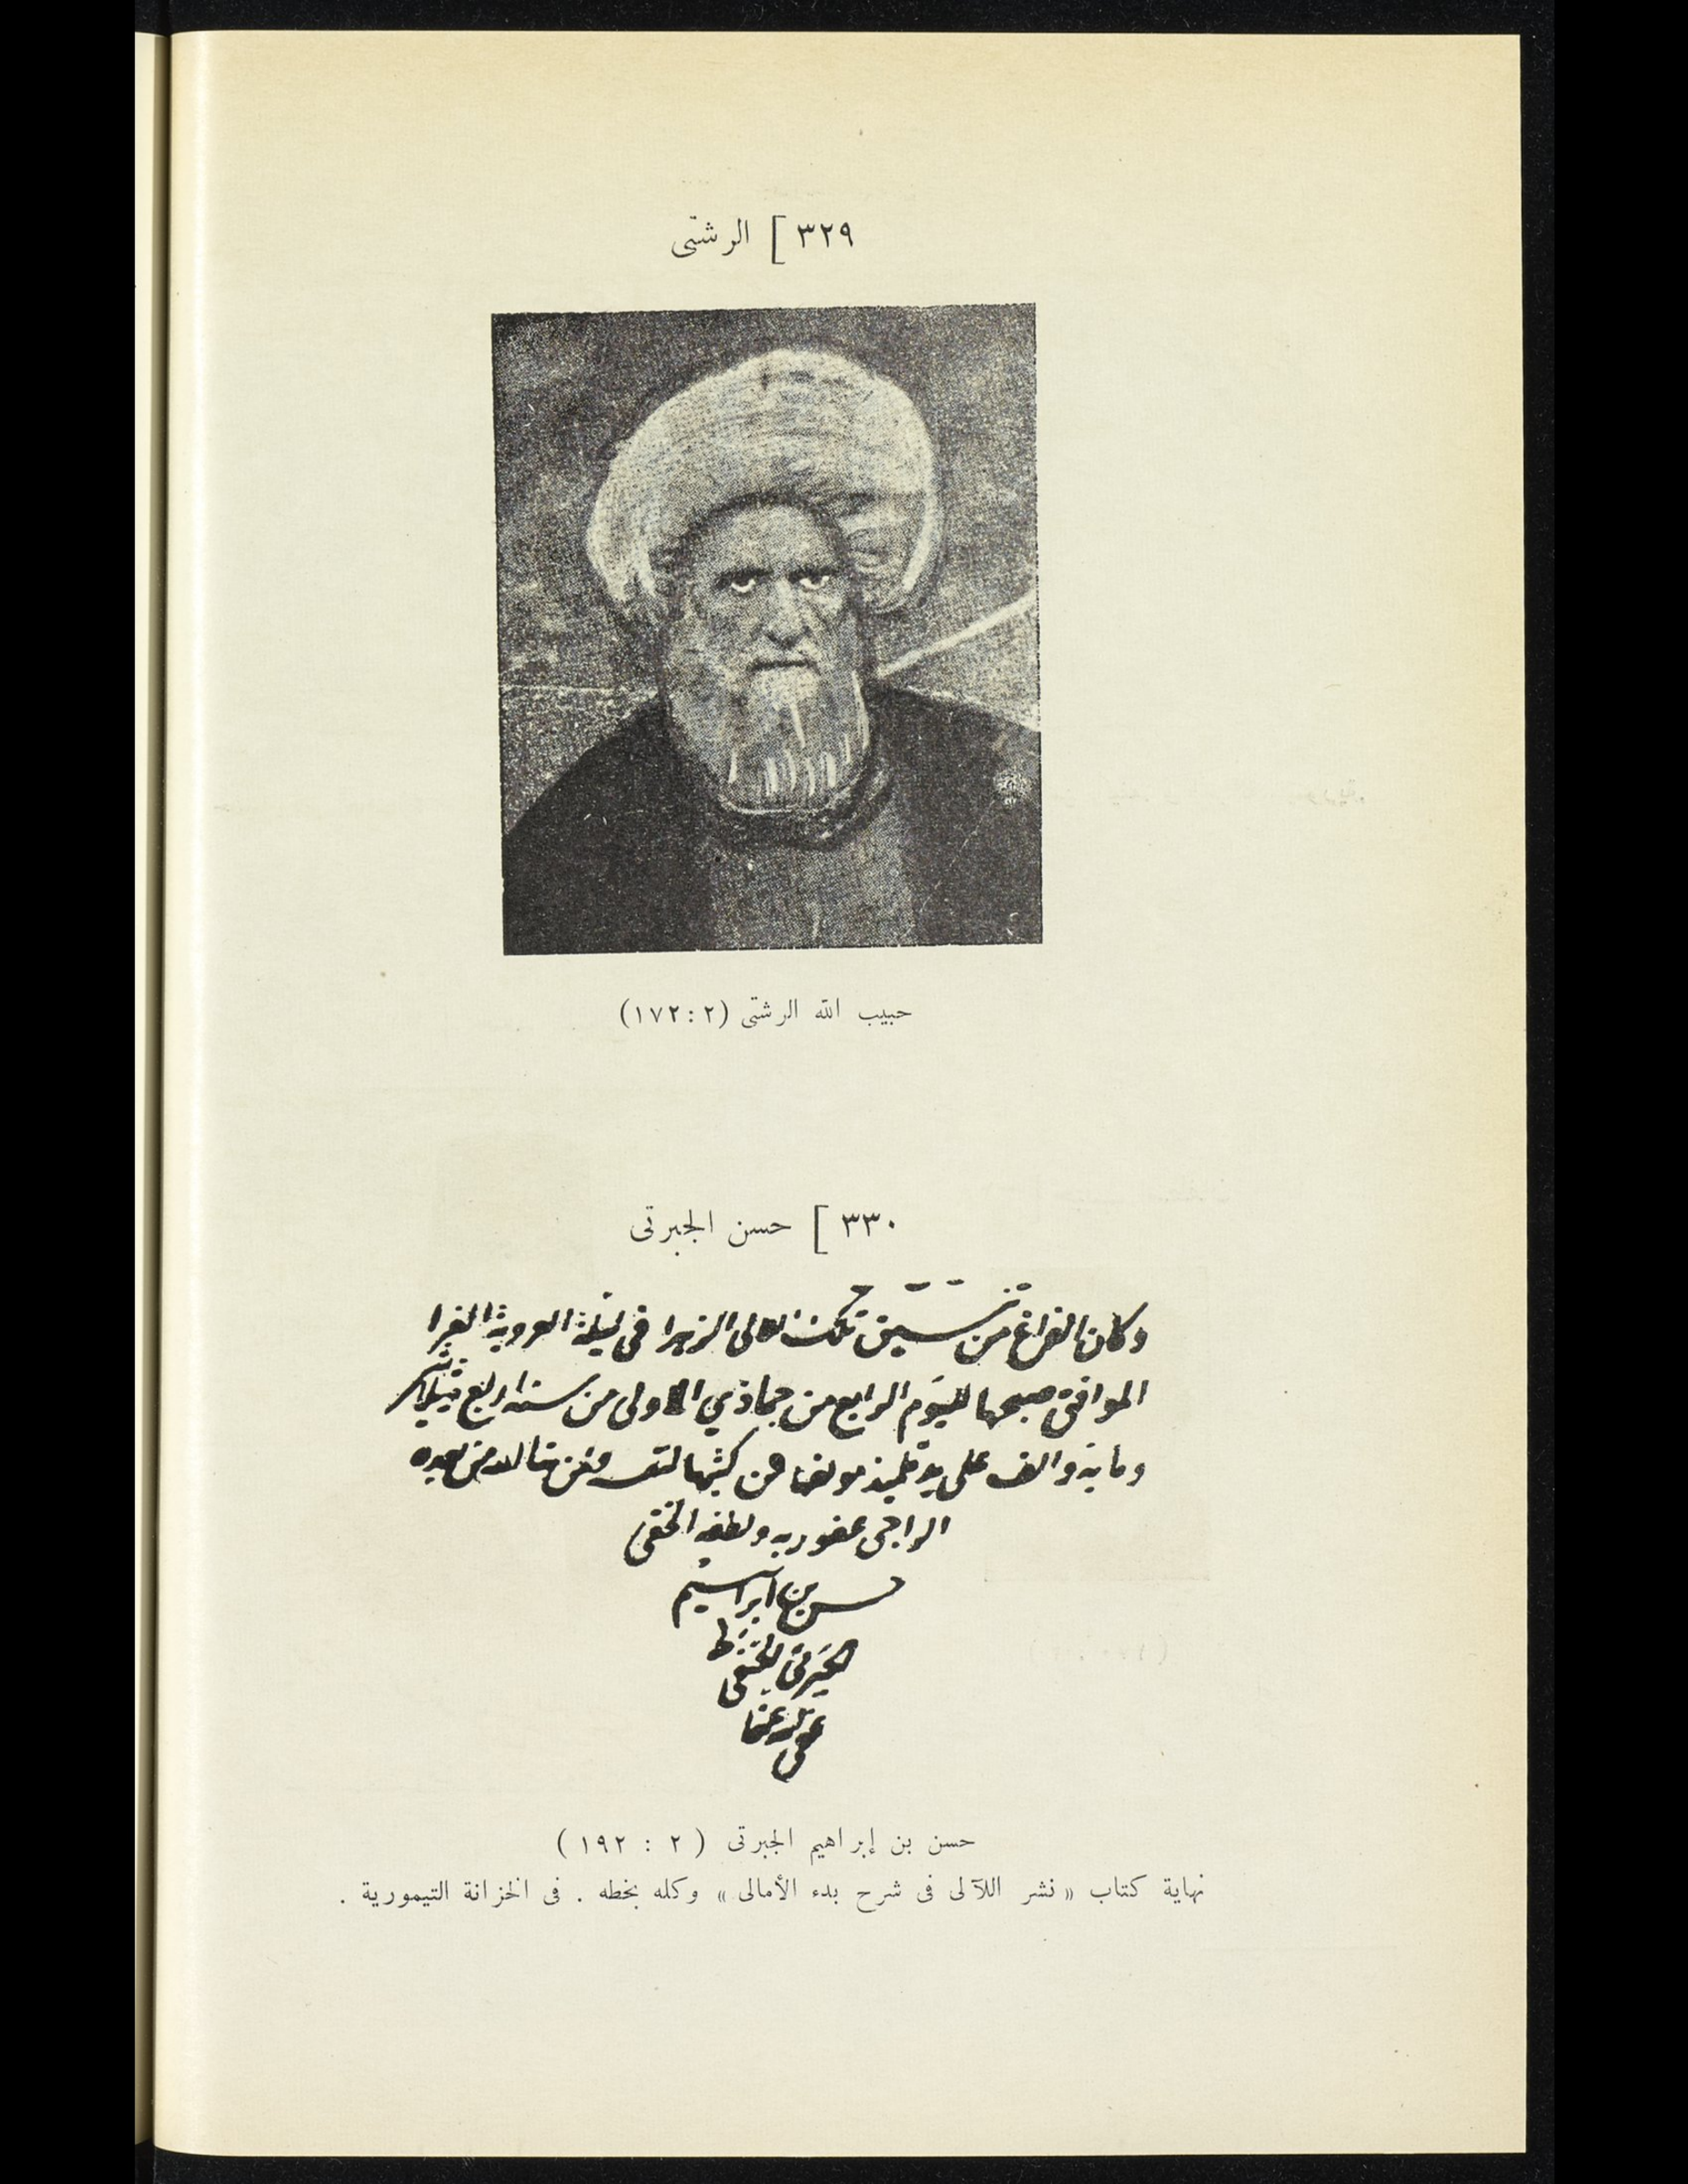 ٣٢٩ ] الرشتى
حبيب الله الرشتى (٢ : ١٧٢)
٣٣٠ ] حسن الجبرتى
وكان الفراغ من تنسيق تلك اللالى الزهرا فى ليلة العروبة الغرا
الموافق صبحها لليوم الرابع من جماذي الاولى من سنة اربع ثلاثين
وماية والف على يد تلميذ مولفها من كتبها لنفسه ولمن شا الله من بعده
الراجى عفو ربه ولطفه الخفى
حسن بن ابراهيم
الجبرتى الحنفى
عفى الله عنها
حسن بن إبراهيم الجبرتى ( ٢ : ١٩٢ )
نهاية كتاب « نشر اللآلى فى شرح بدء الأمالى » وكله بخطه . فى الخزانة التيمورية .